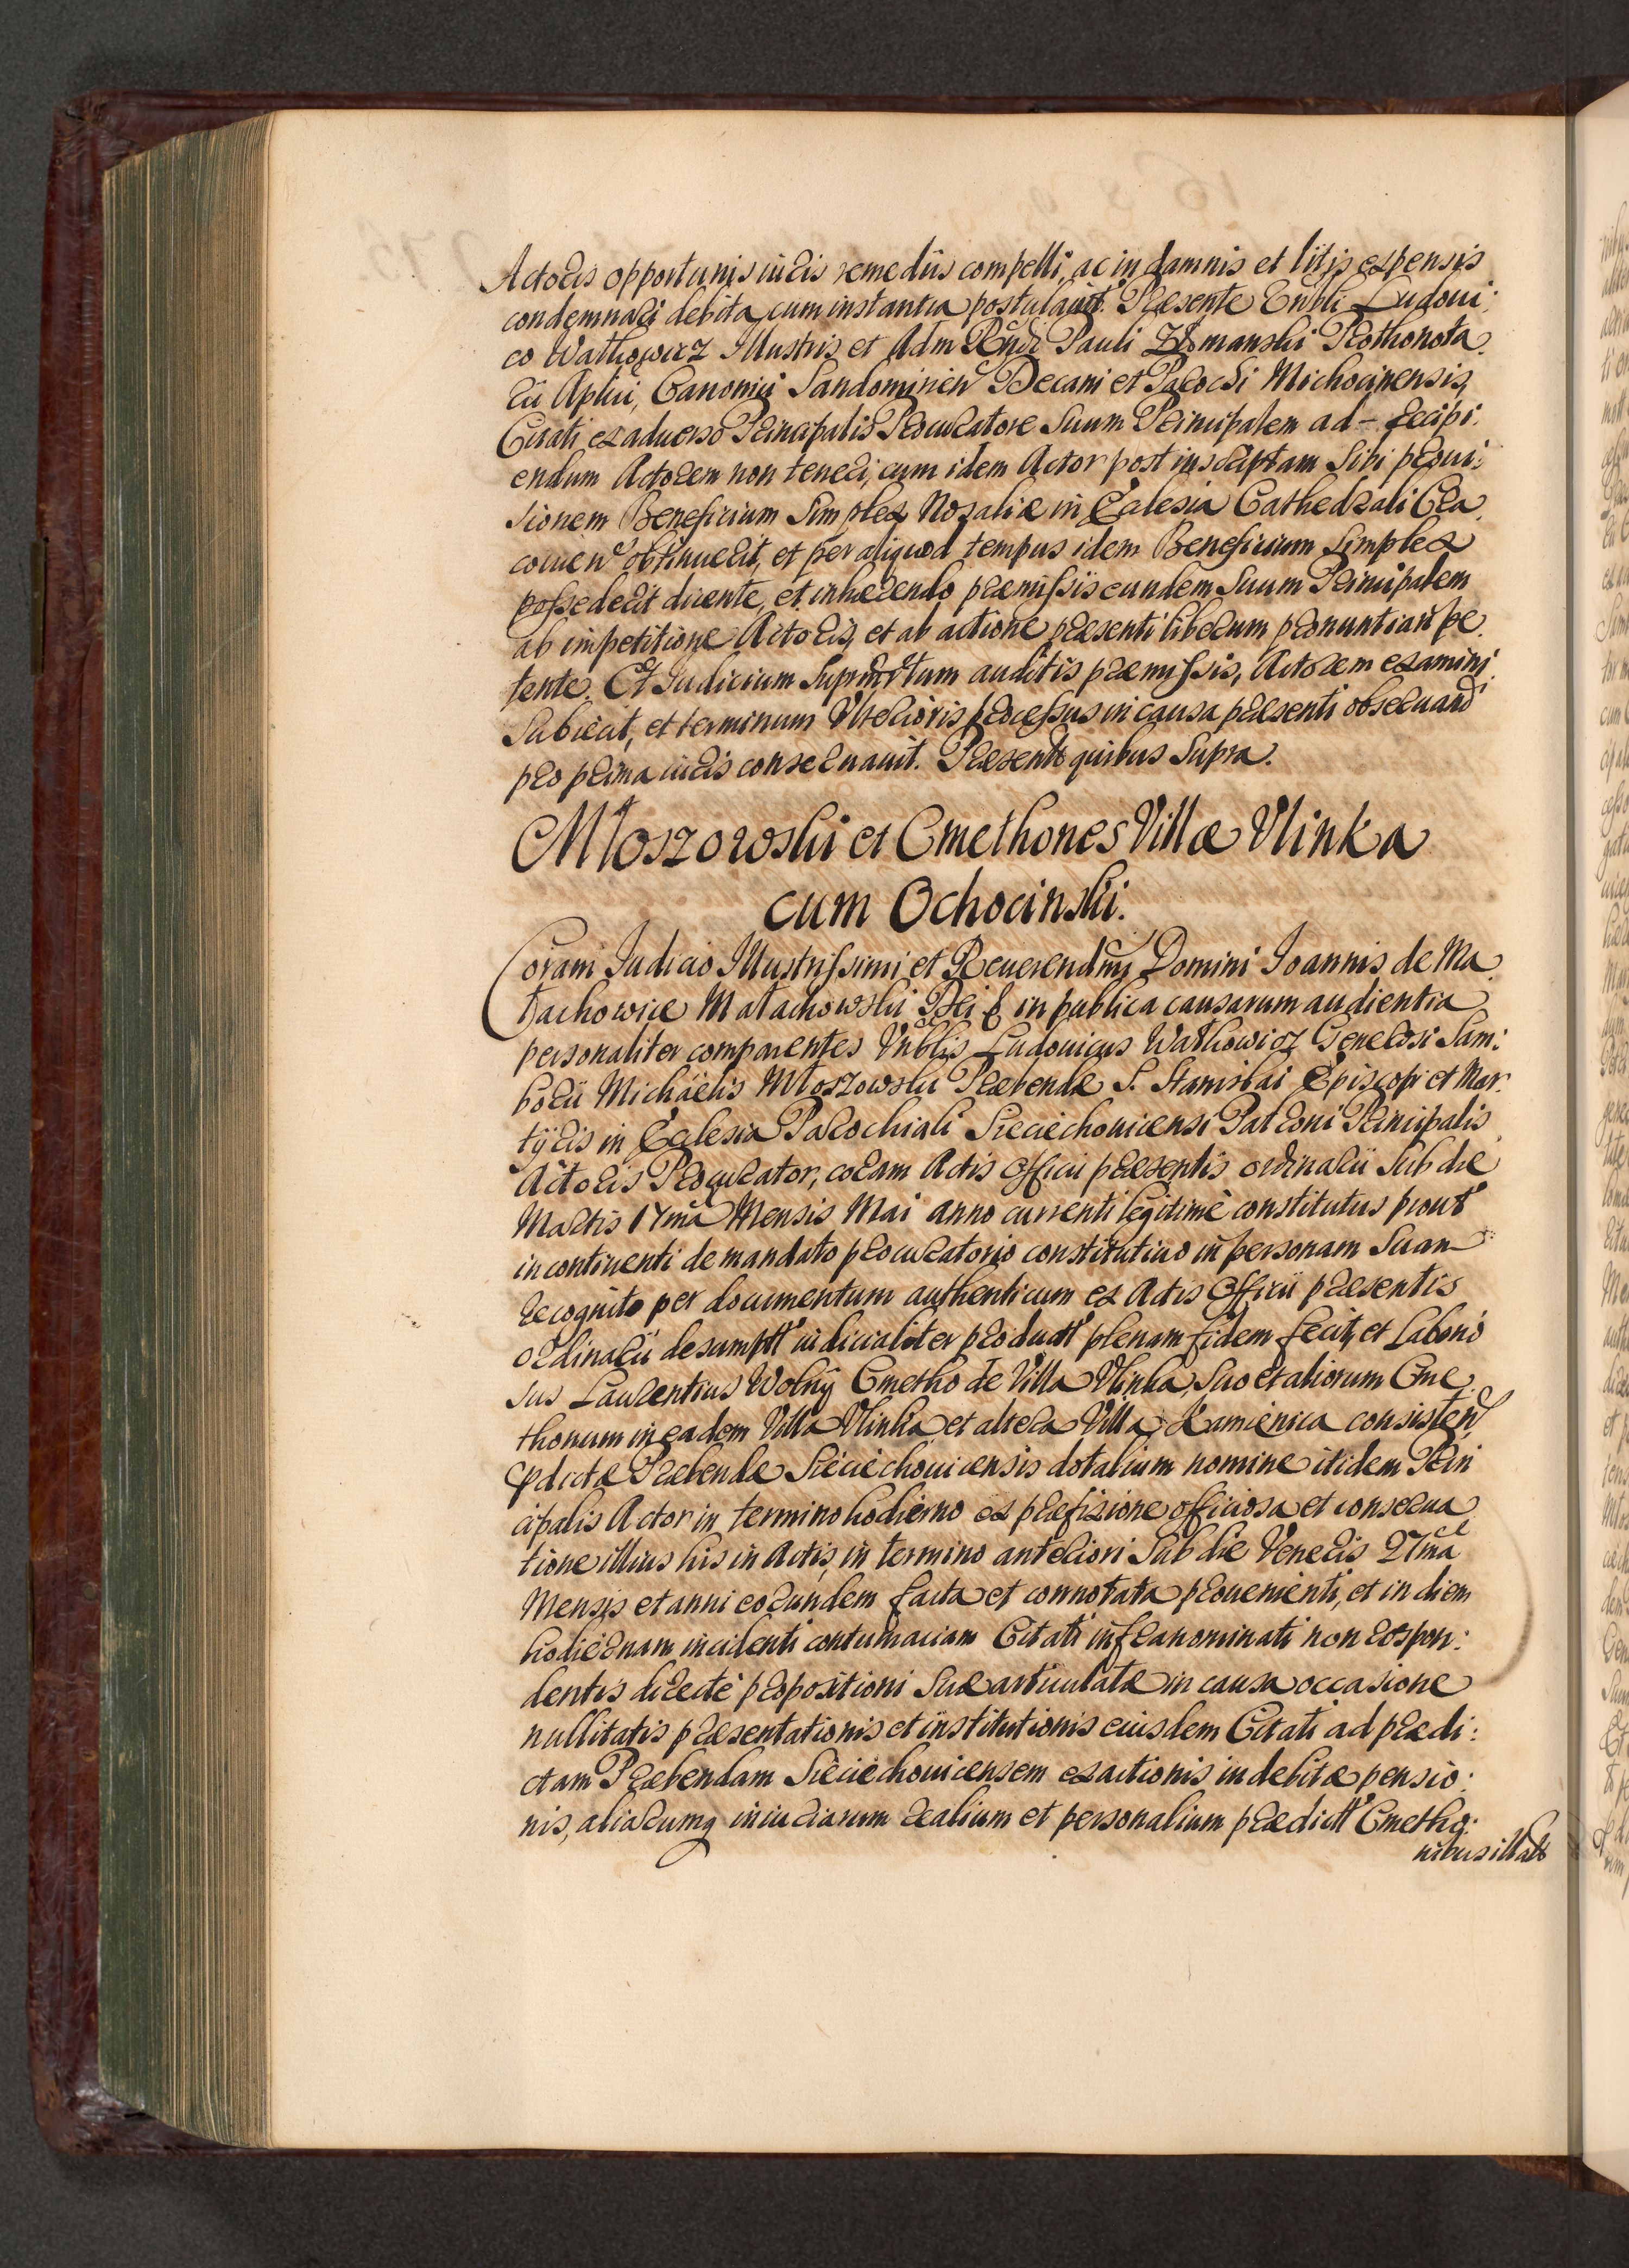 Actoris opportunis iuris remediis compelli, ac in damnis et litis expensis
condemnari debita cum instantia postulauit. Praesente Enbli Ludoui:
co Wathowicz Illustris et Adm Rndi Pauli Prothonota
rii Aplici, Canonici Sandomirien Decani et Parochi Michocinensis,
Citati ex aduerso Principalis Procuratore Suum Principalem ad - recipi:
endum Actorem non teneri, cum idem Actor post inscriptam Sibi proui:
sionem Beneficium Simplex Rozaliae in Eclesia Cathedrali Cra
couien obtinuerit, et per aliquod tempus idem Beneficium Simplex
possederit dicente, et inhaerendo praemissis eundem Suum Principalem
ab impetitione Actoris, et ab actione praesenti liberum pronuntiari pe
tente. Et Iudicium Suprmttum auditis praemissis, Actorem examini
Subiecit, et terminum Vlterioris processus in causa praesenti obseruandi
pro prima iuris conseruauit. Praesentt quibus Supra.
Młoszowski et Cmethones Villae Vlinka
cum Ochocinski.
Coram Iudicio Illustrissimi et Reuerendmi Domini Ioannis de Ma
łachowice Małachowski Dei & in publica causarum audientia
personaliter comparentes Vnblis Ludouicus Wathowicz Generosi Sam:
borii Michäelis Młoszowski Praebendae S. Stanislai Episcopi et Mar
tyris in Ecclesia Parochiali Sieciechouicensi Patroni Principalis
Actoris Procurator, coram Actis Officii praesentis ordinarii Sub die
Martis 17ma Mensis Mai anno currenti legitimè constitutus prout
incontinenti de mandato procuratorio constitutiuo in personam Suam
recognito per documentum authenticum ex Actis Officii praesentis
ordinarii desumptt iudicialiter productt plenam fidem fecit, et Laborio
sus Laurentius Wolny Cmetho de Villa Vlinka, Suo et aliorum Cme
thonum in eadem Villa Vlinka et altera Villa Kamienica consisten
pdictae Praebendae Sieciechouicensis dotalium nomine itidem Prin
cipalis Actor in termino hodierno ex praefixione officiosa et conserua
tione illius his in Actis, in termino anteriori Sub die Veneris 27ma
Mensis et anni eorundem facta et connotata prouenienti, et in diem
hodiernam incidenti contumaciam Citati infranominati non respon:
dentis directè propositioni Suae articulatae in causa occasione
nullitatis praesentationis et institutionis eiusdem Citati ad praedi:
ctam Praebendam Sieciechouicensem exactionis indebitae pensio:
nis, aliarumq iniuriarum realium et personalium praedictt Cmetho:
nibus illatt